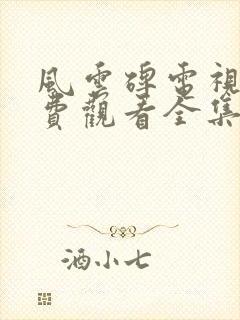 風雲碑電視
費觀看全集
酒小七